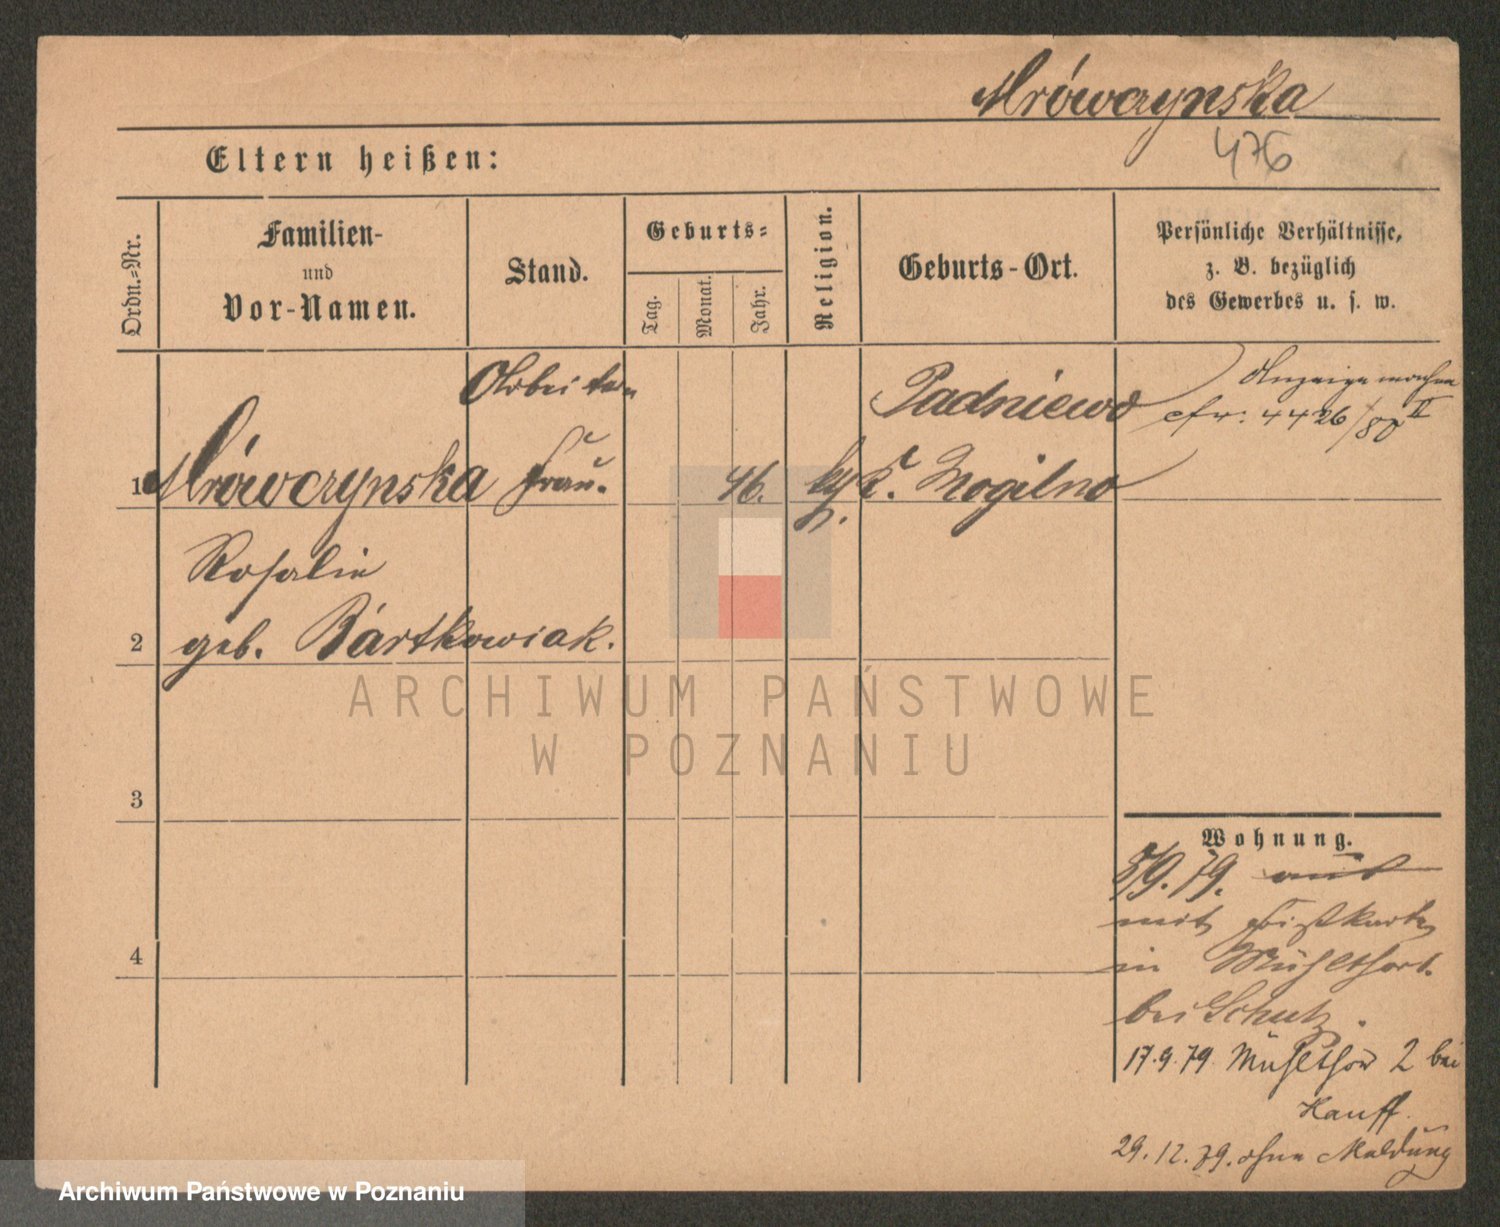 Mrówczynska
476
Eltern heißen:
Ordn.-Nr.
Familien-
und
Vor-Namen.
Stand.
Geburts-
Tag.
Monat.
Jahr.
Religion.
Geburts-Ort.
Persönliche Verhältnisse,
z. B. bezüglich
des Gewerbes u. s. w.
1 Mrówczynska
Arbeiter
Frau.
46.
Padniewo
K. Mogilno
Anzeige machen
cfr: 4426/80 II
Rosalie
2 geb. Bartkowiak.
ARCHIWUM PAŃSTWOWE
W POZNANIU
3
4
Wohnung.
5/9. 79.
mit
in Mühlthor
bei Schutz.
17.9.79. Mühlthor 2 bei
Hauff.
29.12.79. ohne Meldung
Archiwum Państwowe w Poznaniu